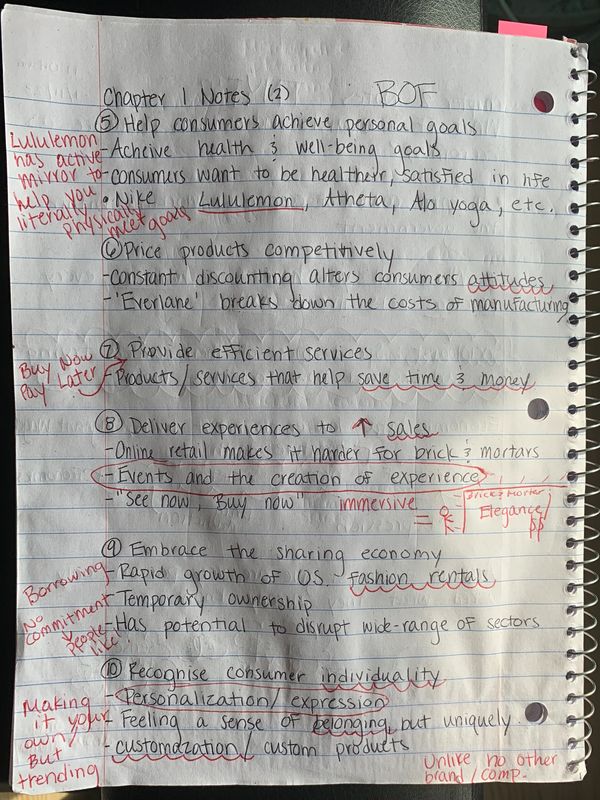 Chapter 1 Notes (2) BOF
⑤ Help consumers achieve personal goals
Lululemon has active mirror to help you literally physically meet goals
- Acheive health & well-being goals
- consumers want to be healtheir, satisfied in life
• Nike Lululemon, Atheta, Alo yoga, etc.
⑥ Price products competitively
- constant discounting alters consumers attitudes
- 'Everlane' breaks down the costs of manufacturing
⑦ Provide efficient services
Buy Now Pay Later
- Products/services that help save time & money
⑧ Deliver experiences to ↑ sales
- Online retail makes it harder for brick & mortars
- Events and the creation of experience
- "see now, Buy now" immersive =
Brick & Morter
Elegance
$$
⑨ Embrace the sharing economy
Borrowing
- Rapid growth of US. fashion rentals
No commitment
- Temporary ownership
people like!
- Has potential to disrupt wide-range of sectors
⑩ Recognise consumer individuality
Making it your own/ But trending
- Personalization/expression
- Feeling a sense of belonging, but uniquely.
- customazation/ custom products
Unlike no other
brand/comp.